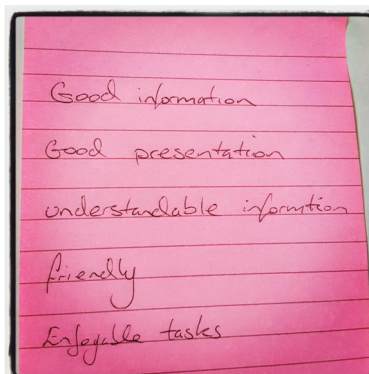 Good information
Good presentation
understandable informtion
friendly
Enjoyable tasks